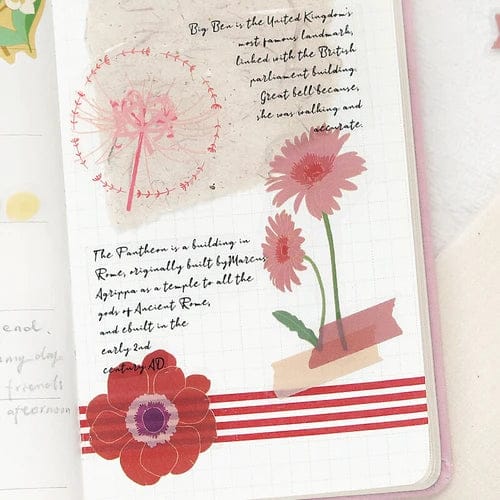 Big Ben is the United Kingdom's
most famous landmark,
linked with the British
parliament building.
Great bell because,
she was walking and
accurate.
The Pantheon is a building in
Rome, originally built byMarcus
Agrippa as a temple to all the
gods of Ancient Rome,
and ebuilt in the
early 2nd
century AD
end.
my day
friends
afternoon